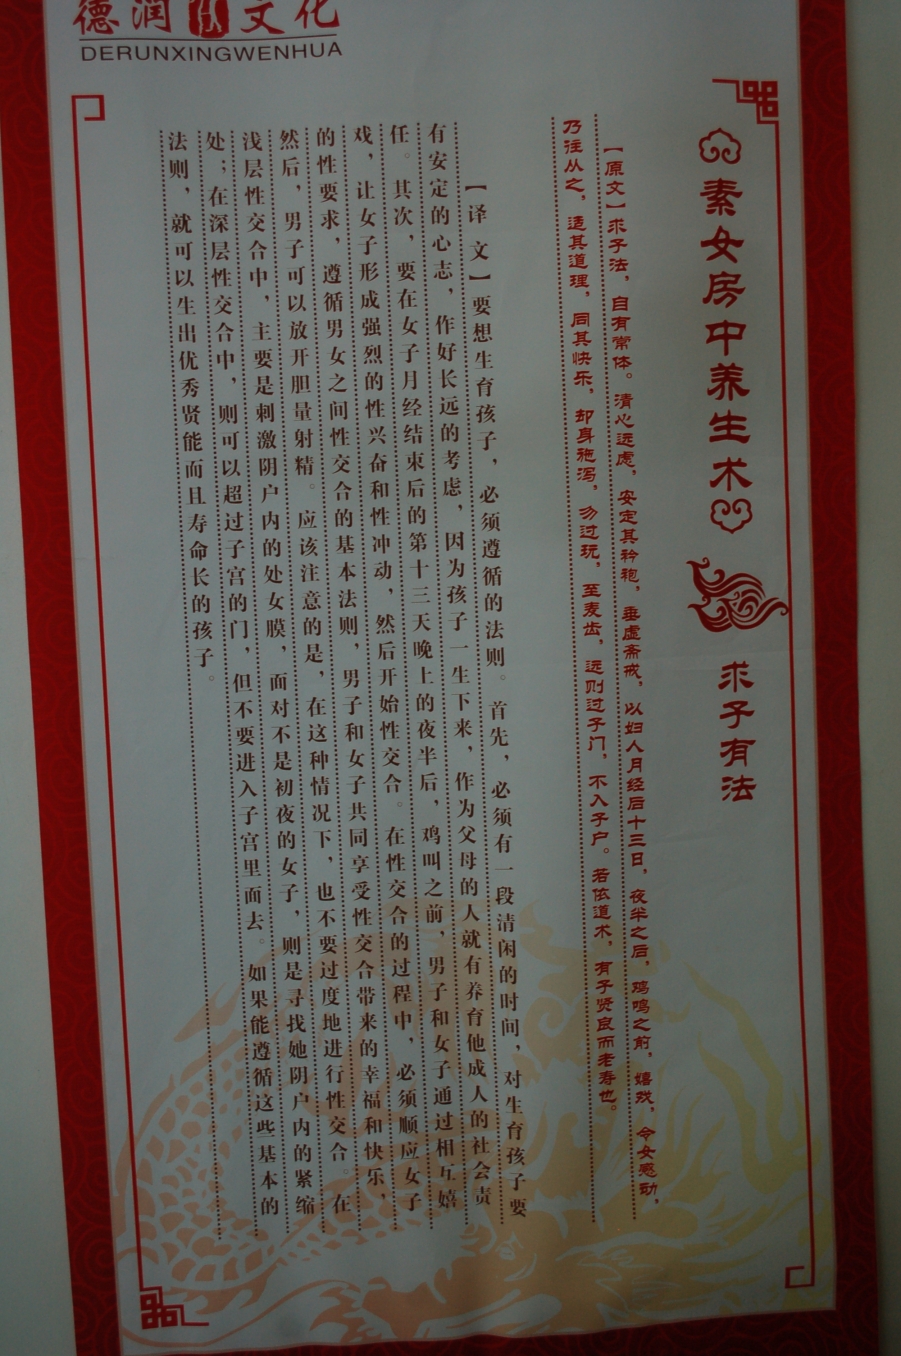 德润性文化
DERUNXINGWENHUA
素女房中养生术
求子有法
【原文】求子法，自有常体。清心远虑，安定其衿袍，垂虚斋戒，以妇人月经后十三日，夜半之后，鸡鸣之前，嬉戏，令女感动，
乃往从之，适其道理，同其快乐，却身施泻，勿过玩，至麦齿，远则过子门，不入子户。若依道术，有子贤良而老寿也。
【译文】要想生育孩子，必须遵循的法则。首先，必须有一段清闲的时间，对生育孩子要
有安定的心志，作好长远的考虑，因为孩子一生下来，作为父母的人就有养育他成人的社会责
任。其次，要在女子月经结束后的第十三天晚上的夜半后，鸡叫之前，男子和女子通过相互嬉
戏，让女子形成强烈的性兴奋和性冲动，然后开始性交合。在性交合的过程中，必须顺应女子
的性要求，遵循男女之间性交合的基本法则，男子和女子共同享受性交合带来的幸福和快乐，
然后，男子可以放开胆量射精。应该注意的是，在这种情况下，也不要过度地进行性交合。在
浅层性交合中，主要是刺激阴户内的处女膜，面对不是初夜的女子，则是寻找她阴户内的紧缩
处；在深层性交合中，则可以超过子宫的门，但不要进入子宫里面去。如果能遵循这些基本的
法则，就可以生出优秀贤能而且寿命长的孩子。